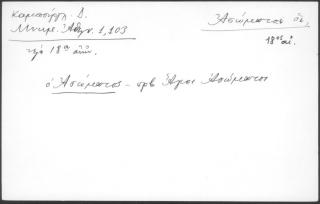 Καμπούρογλ. Δ.
Μνημ. Ἀθην. 1,103
τέλη 18ου αἰῶν.
Ἀσώματος ὁ,
18ος αἰ.
ὁ Ἀσώματος - πρβ Ἅγιοι Ἀσώματοι